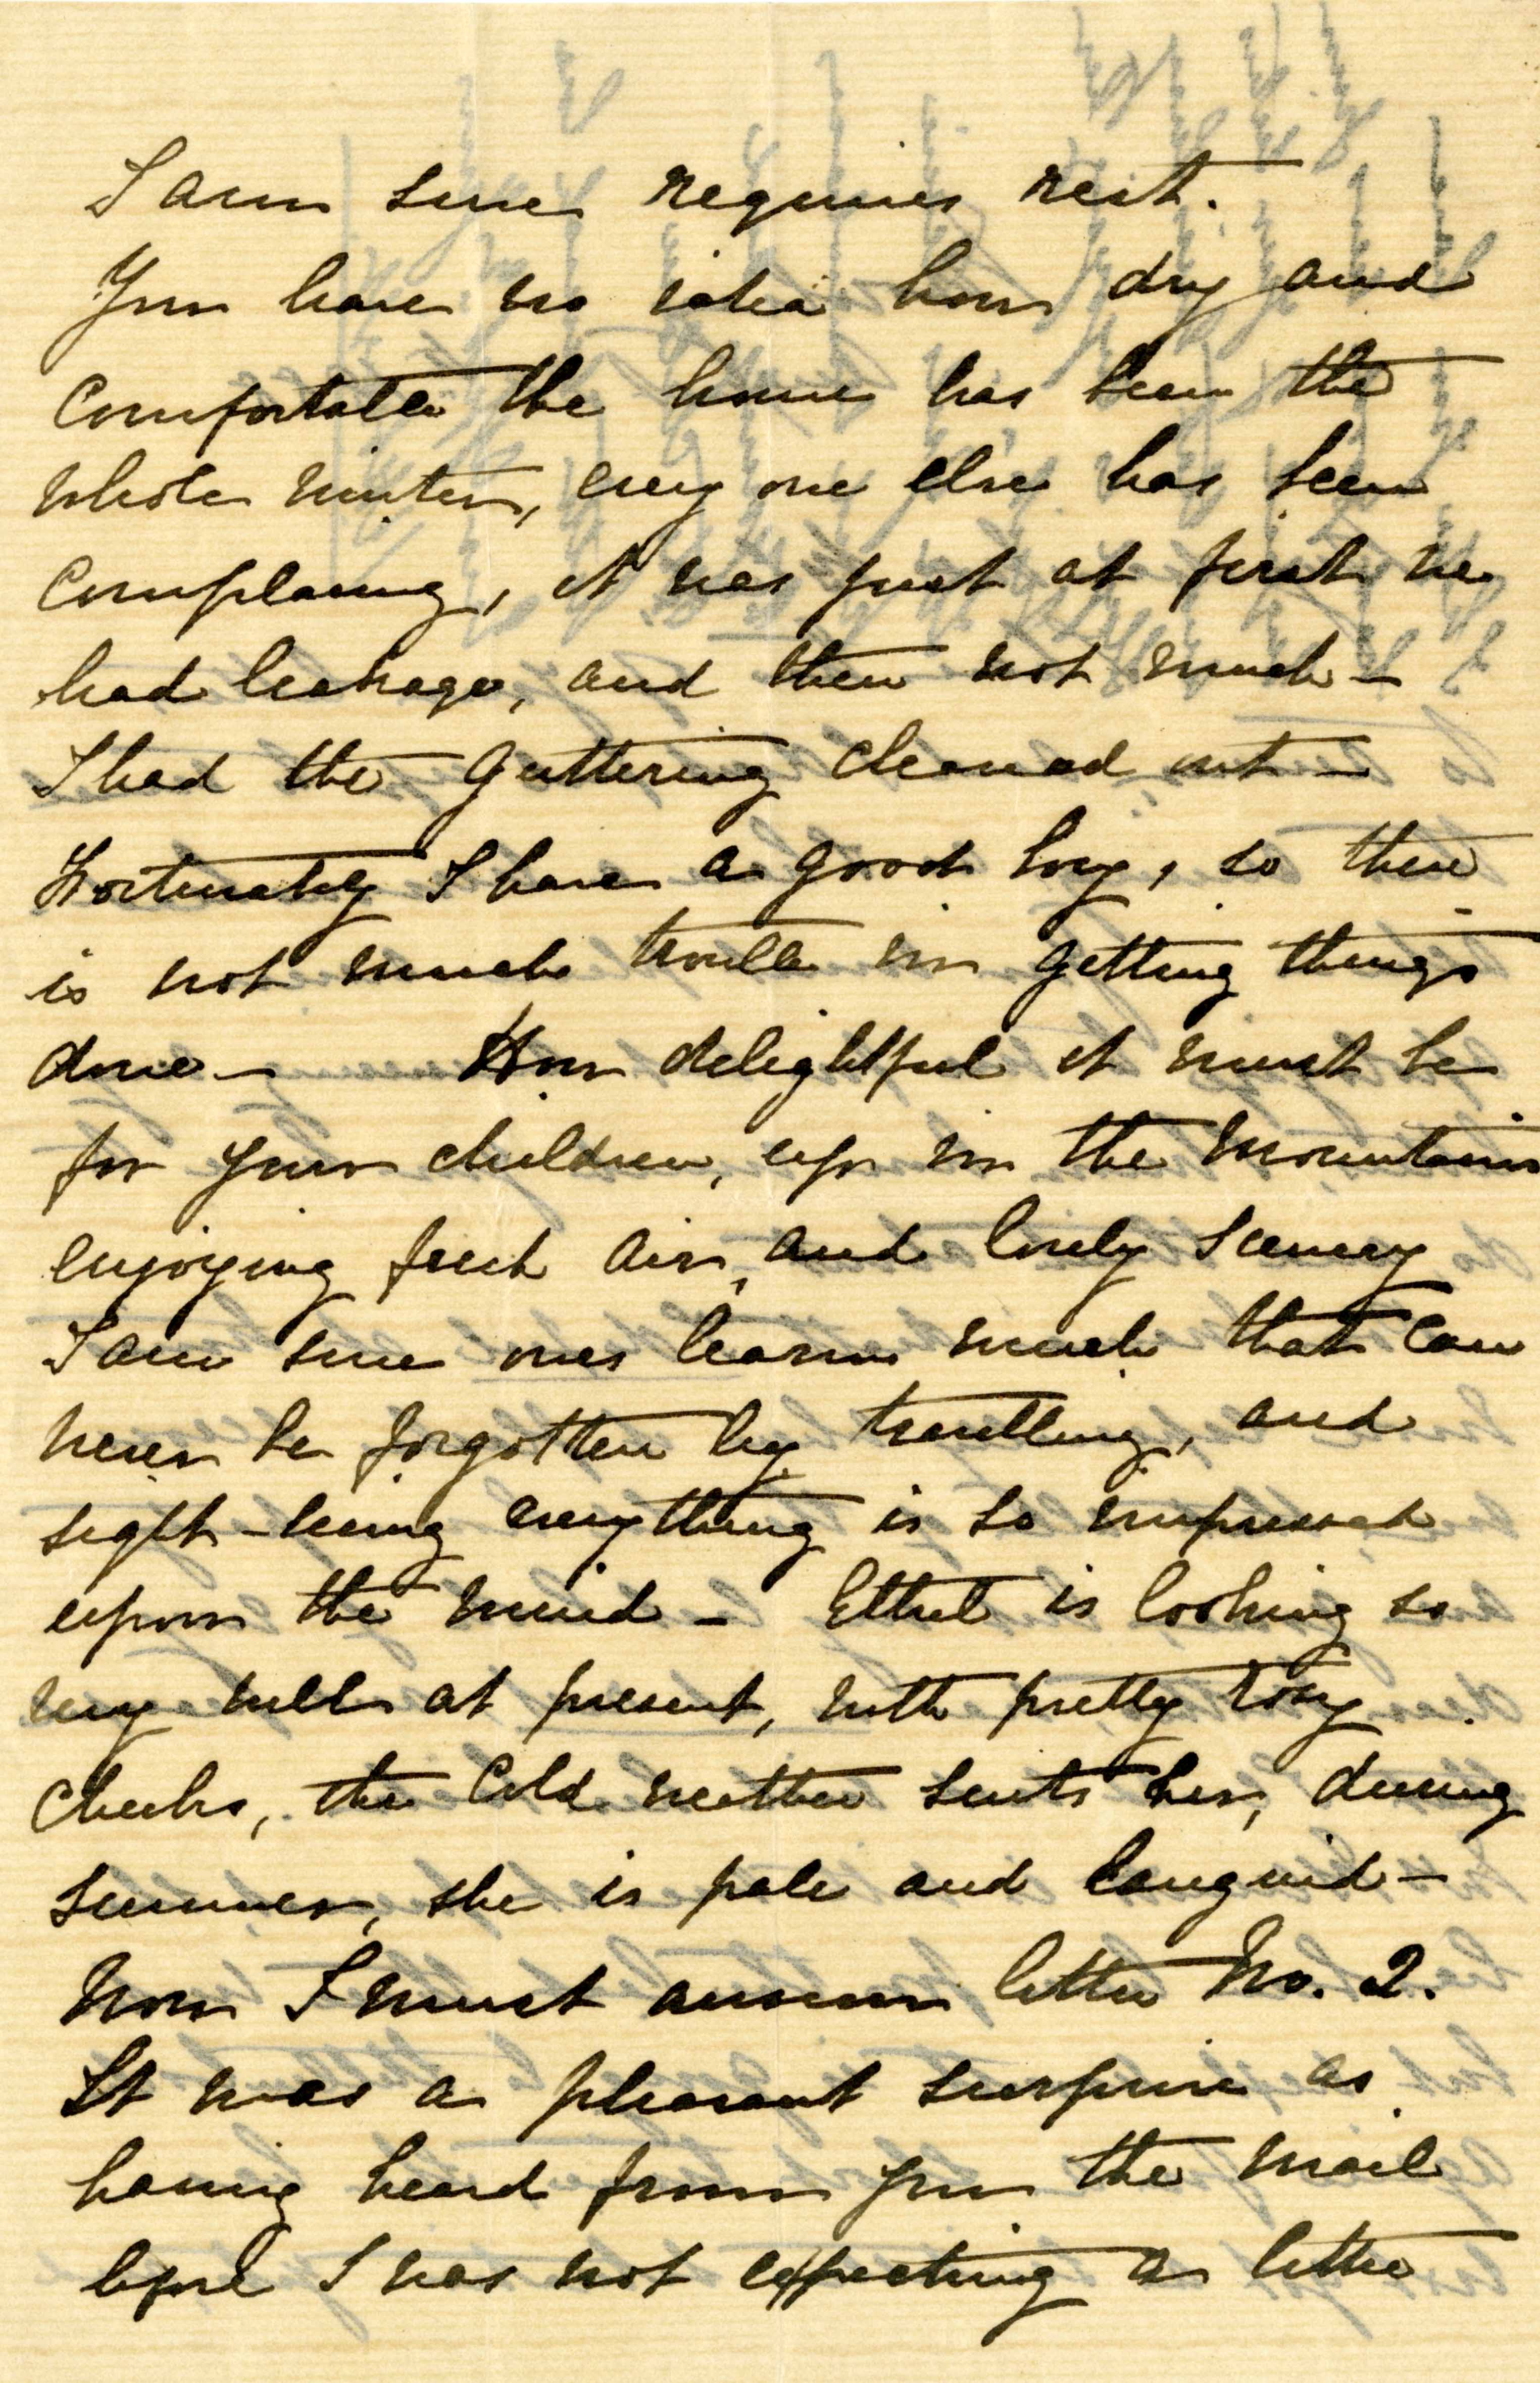 I am sure requires rest.
You have no idea how dry and
Comfortable the house has been the
whole winter, every one else has been
Complaing, it was just at first we
had leakage, and then not much –
I had the guttering cleaned out –
Fortunately I have a good boy, so there
is not much trouble in getting things
done – How delightful it must be
for your children, up in the mountains
enjoying fresh air, and lovely scenery
I am sure ones learns much that can
never be forgotten by travelling, and
sight-seeing everything is so impressed
upon the mind – Ethel is looking so
very well at present, with pretty rosy
Cheeks, the Cold weather suits her, during
summer, she is pale and languid –
Now I must answer letter No. 2.
It was a pleasant surprise as
having heard from you the mail
before I was not expecting a letter